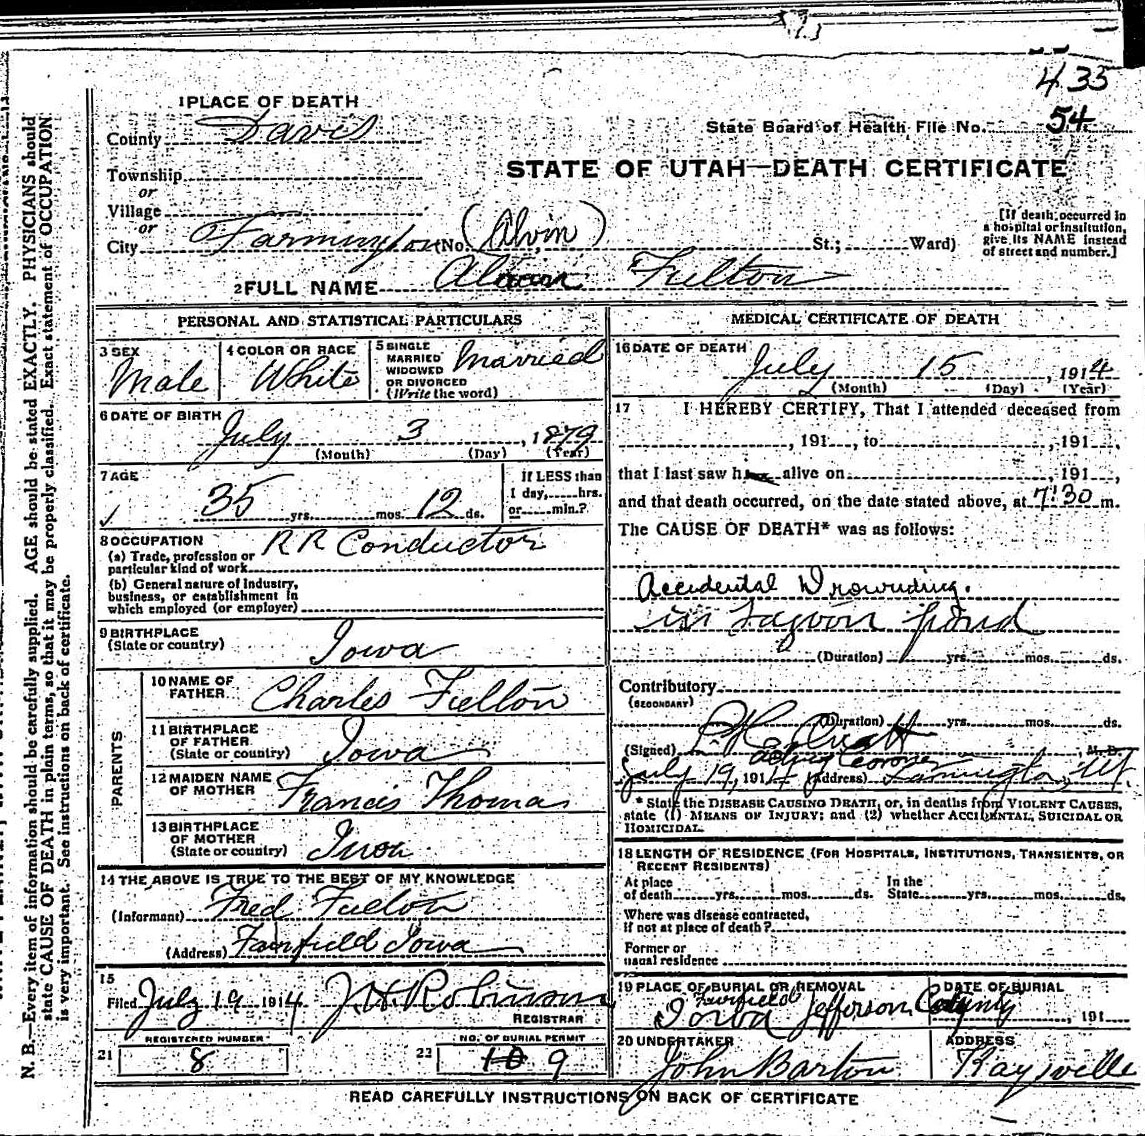 435
State Board of Health File No. 54
STATE OF UTAH—DEATH CERTIFICATE
1 PLACE OF DEATH
County Davis
Township
or
Village
or
City Farmington (No. (Alvin) St.; Ward)
[If death occurred in
a hospital or institution,
give its NAME instead
of street and number.]
2 FULL NAME Fulton
PERSONAL AND STATISTICAL PARTICULARS
3 SEX
Male
4 COLOR OR RACE
White
5 SINGLE
MARRIED
WIDOWED
OR DIVORCED
(Write the word)
Married
6 DATE OF BIRTH
July 3, 1879
(Month) (Day) (Year)
7 AGE
35 yrs. mos. 12 ds.
If LESS than
1 day, hrs.
or min.?
8 OCCUPATION
(a) Trade, profession or
particular kind of work RR Conductor
(b) General nature of industry,
business, or establishment in
which employed (or employer)
9 BIRTHPLACE
(State or country) Iowa
PARENTS
10 NAME OF
FATHER Charles Fulton
11 BIRTHPLACE
OF FATHER
(State or country) Iowa
12 MAIDEN NAME
OF MOTHER Francis Thomas
13 BIRTHPLACE
OF MOTHER
(State or country) Iowa
14 THE ABOVE IS TRUE TO THE BEST OF MY KNOWLEDGE
(Informant) Fred Fulton
(Address) Fairfield Iowa
15
Filed July 19 1914 J. H. Robinson
REGISTRAR
21 REGISTERED NUMBER
8
22 NO. OF BURIAL PERMIT
9
MEDICAL CERTIFICATE OF DEATH
16 DATE OF DEATH
July 15, 1914
(Month) (Day) (Year)
17 I HEREBY CERTIFY, That I attended deceased from
, 191 , to , 191 ,
that I last saw h alive on , 191 ,
and that death occurred, on the date stated above, at 7:30 m.
The CAUSE OF DEATH* was as follows:
Accidental Drownding.
in Lagoon pond
(Duration) yrs. mos. ds.
Contributory
(SECONDARY)
(Duration) yrs. mos. ds.
(Signed) M. D.
acting Coroner
July 19, 1914 (Address) Farmington, Ut.
* State the DISEASE CAUSING DEATH, or, in deaths from VIOLENT CAUSES,
state (1) MEANS OF INJURY; and (2) whether ACCIDENTAL, SUICIDAL OR
HOMICIDAL.
18 LENGTH OF RESIDENCE (FOR HOSPITALS, INSTITUTIONS, TRANSIENTS, OR
RECENT RESIDENTS)
At place
of death yrs. mos. ds. In the
State yrs. mos. ds.
Where was disease contracted,
if not at place of death?
Former or
usual residence
19 PLACE OF BURIAL OR REMOVAL DATE OF BURIAL
Fairfield
Iowa Jefferson County , 191
20 UNDERTAKER ADDRESS
John Barton Kaysville
READ CAREFULLY INSTRUCTIONS ON BACK OF CERTIFICATE
N. B.—Every item of information should be carefully supplied. AGE should be stated EXACTLY. PHYSICIANS should
state CAUSE OF DEATH in plain terms, so that it may be properly classified. Exact statement of OCCUPATION
is very important. See instructions on back of certificate.